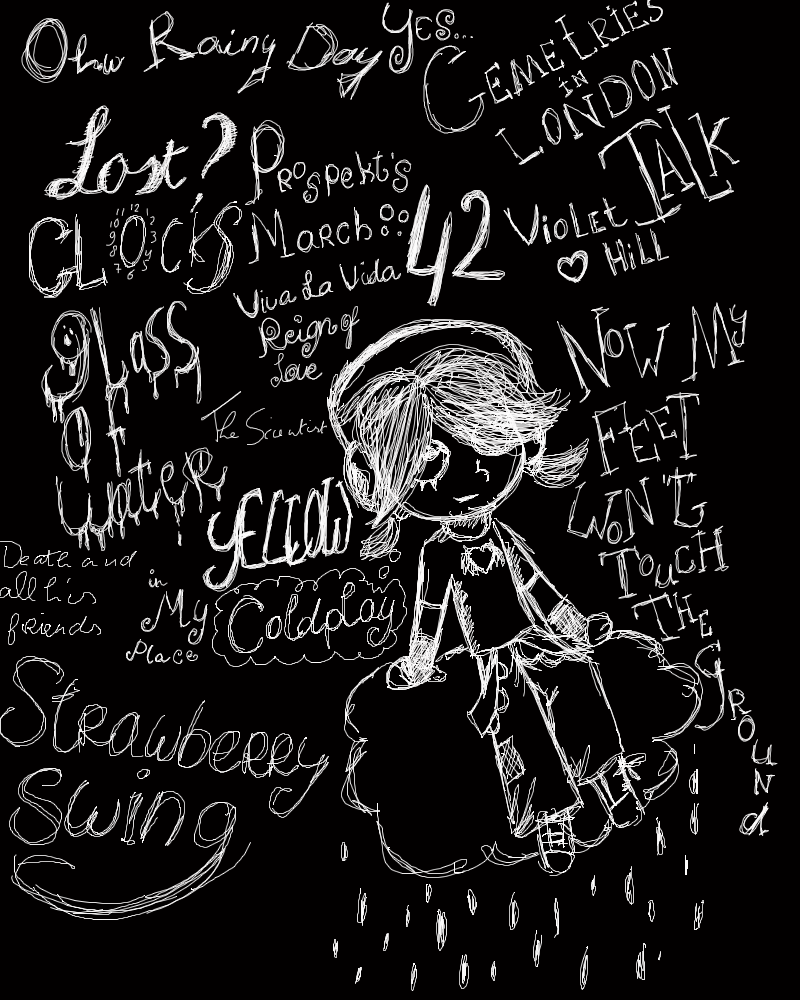 Ohw Rainy Day
YES...
GEMETRIES
IN
LONDON
TALK
Lost?
Prospekt's
March
CLOCKS
12 1 2 3 4 5 6 7 8 9 10 11
42
VIOLET
HILL
Viva La Vida
Reign of
Love
glass
of
water
The Scientist
NOW MY
FEET
WON'T
TOUCH
THE
GROUNd
YELLOW
Death and
all his
friends
in
My
Place
Coldplay
Strawberry
Swing